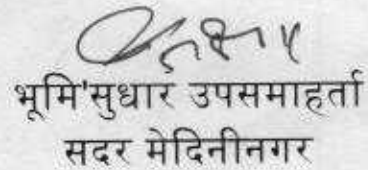 भूमि'सुधार उपसमाहर्ता
सदर मेदिनीनगर